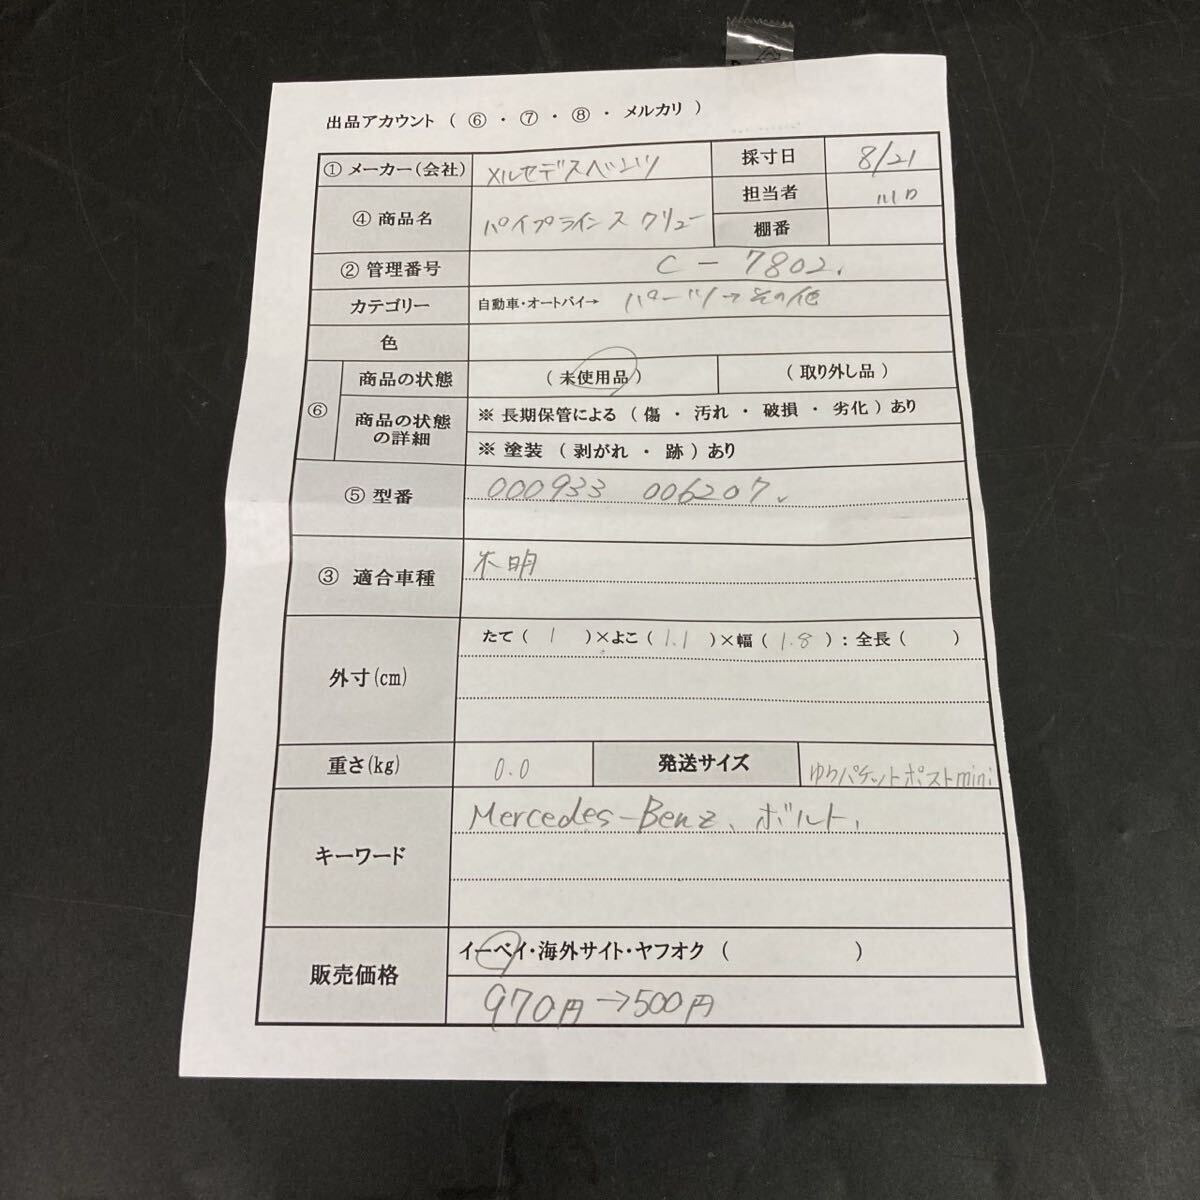 出品アカウント ( ⑥ ・ ⑦ ・ ⑧ ・ メルカリ )
① メーカー(会社) メルセデスベンツ 採寸日 8/21
④ 商品名 パイプラインスクリュー 担当者 川口
棚番
② 管理番号 C - 7802.
カテゴリー 自動車・オートバイ→ パーツ→その他
色
⑥ 商品の状態 ( 未使用品 ) ( 取り外し品 )
商品の状態の詳細 ※ 長期保管による ( 傷 ・ 汚れ ・ 破損 ・ 劣化 ) あり
※ 塗装 ( 剥がれ ・ 跡 ) あり
⑤ 型番 000933 006207.
③ 適合車種 不明
外寸(cm) たて ( 1 ) ×よこ ( 1.1 ) ×幅 ( 1.8 ) : 全長 ( )
重さ(kg) 0.0 発送サイズ ゆうパケットポストmini
キーワード Mercedes-Benz、ボルト、
販売価格 イーベイ・海外サイト・ヤフオク ( )
970円→500円